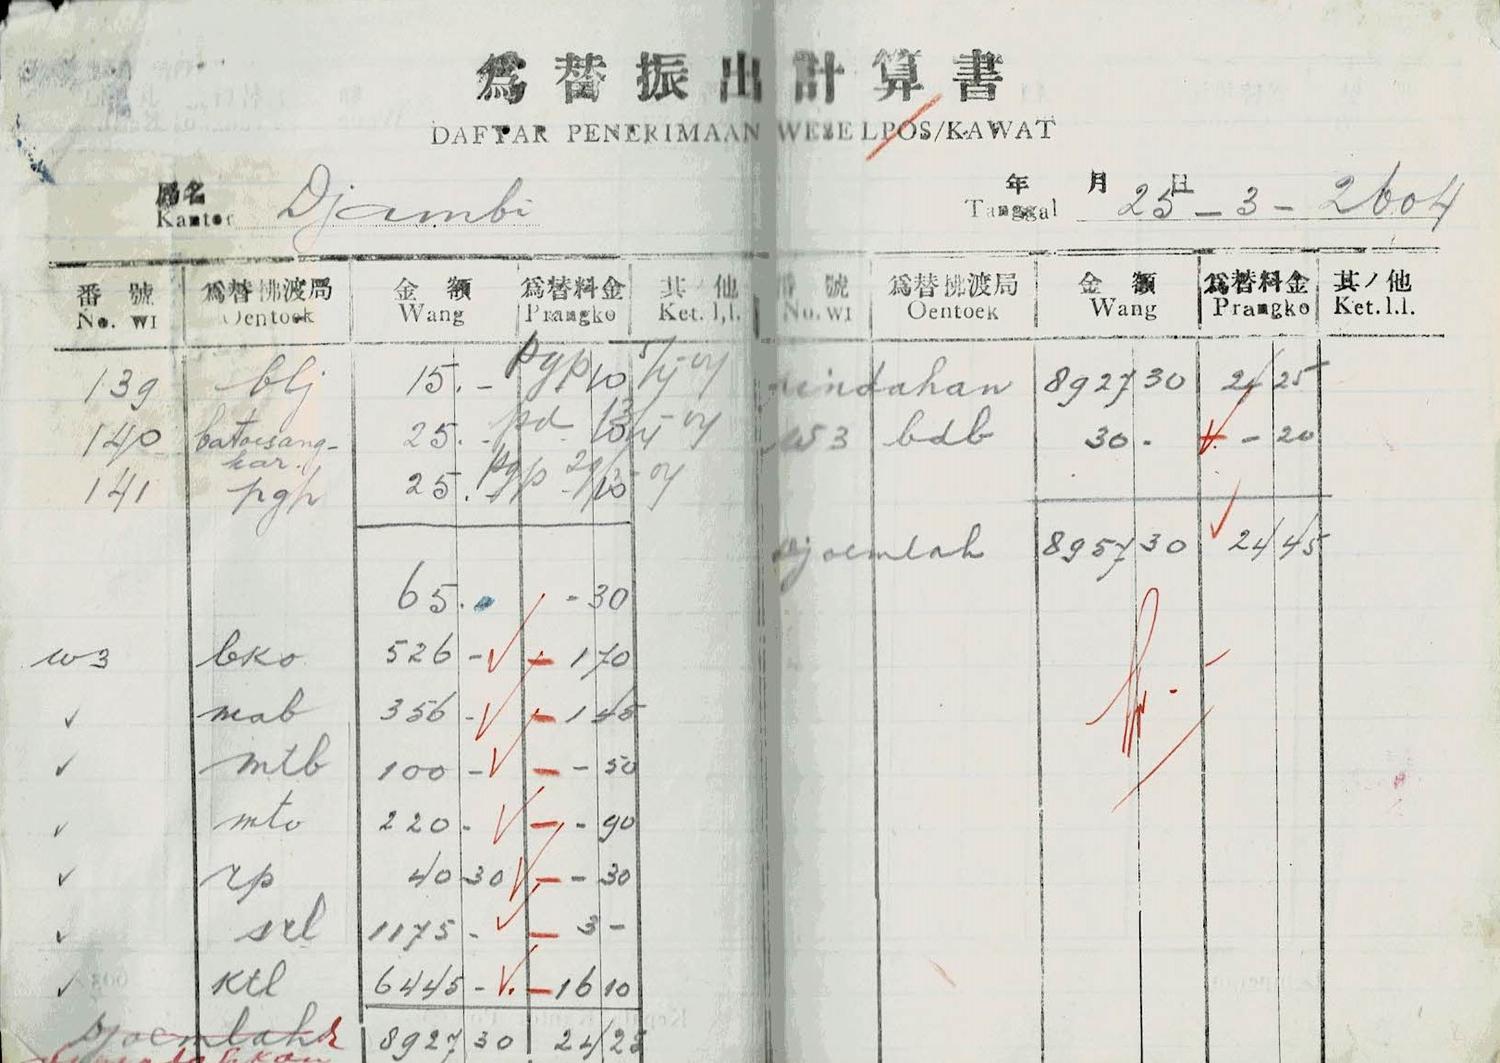 為替振出計算書
DAFTAR PENERIMAAN WESELPOS/KAWAT
局名 年 月 日
Kantor Djambi Tanggal 25-3-2604
番號 為替拂渡局 金額 為替料金 其ノ他 番號 為替拂渡局 金額 為替料金 其ノ他
No. WI Oentoek Wang Prangko Ket. l.l. No. WI Oentoek Wang Prangko Ket. l.l.
139 blj 15.- pgp 10 5/4-04 pindahan 8927 30 24 25
140 batoesang- 25.- pd 10 13/4-04 W3 bdb 30- - 20
kar.
141 pgp 25.- pgp - 10 29/3-04
Djoemlah 8957 30 24 45
65.- - 30
W3 bko 526 - 1 70
✓ mab 356 - 1 45
✓ mtb 100 - - 50
✓ mto 220 - - 90
✓ rp 40 30 - 30
✓ srl 1175 - 3 -
✓ ktl 6445 - 16 10
Djoemlah 8927 30 24 25